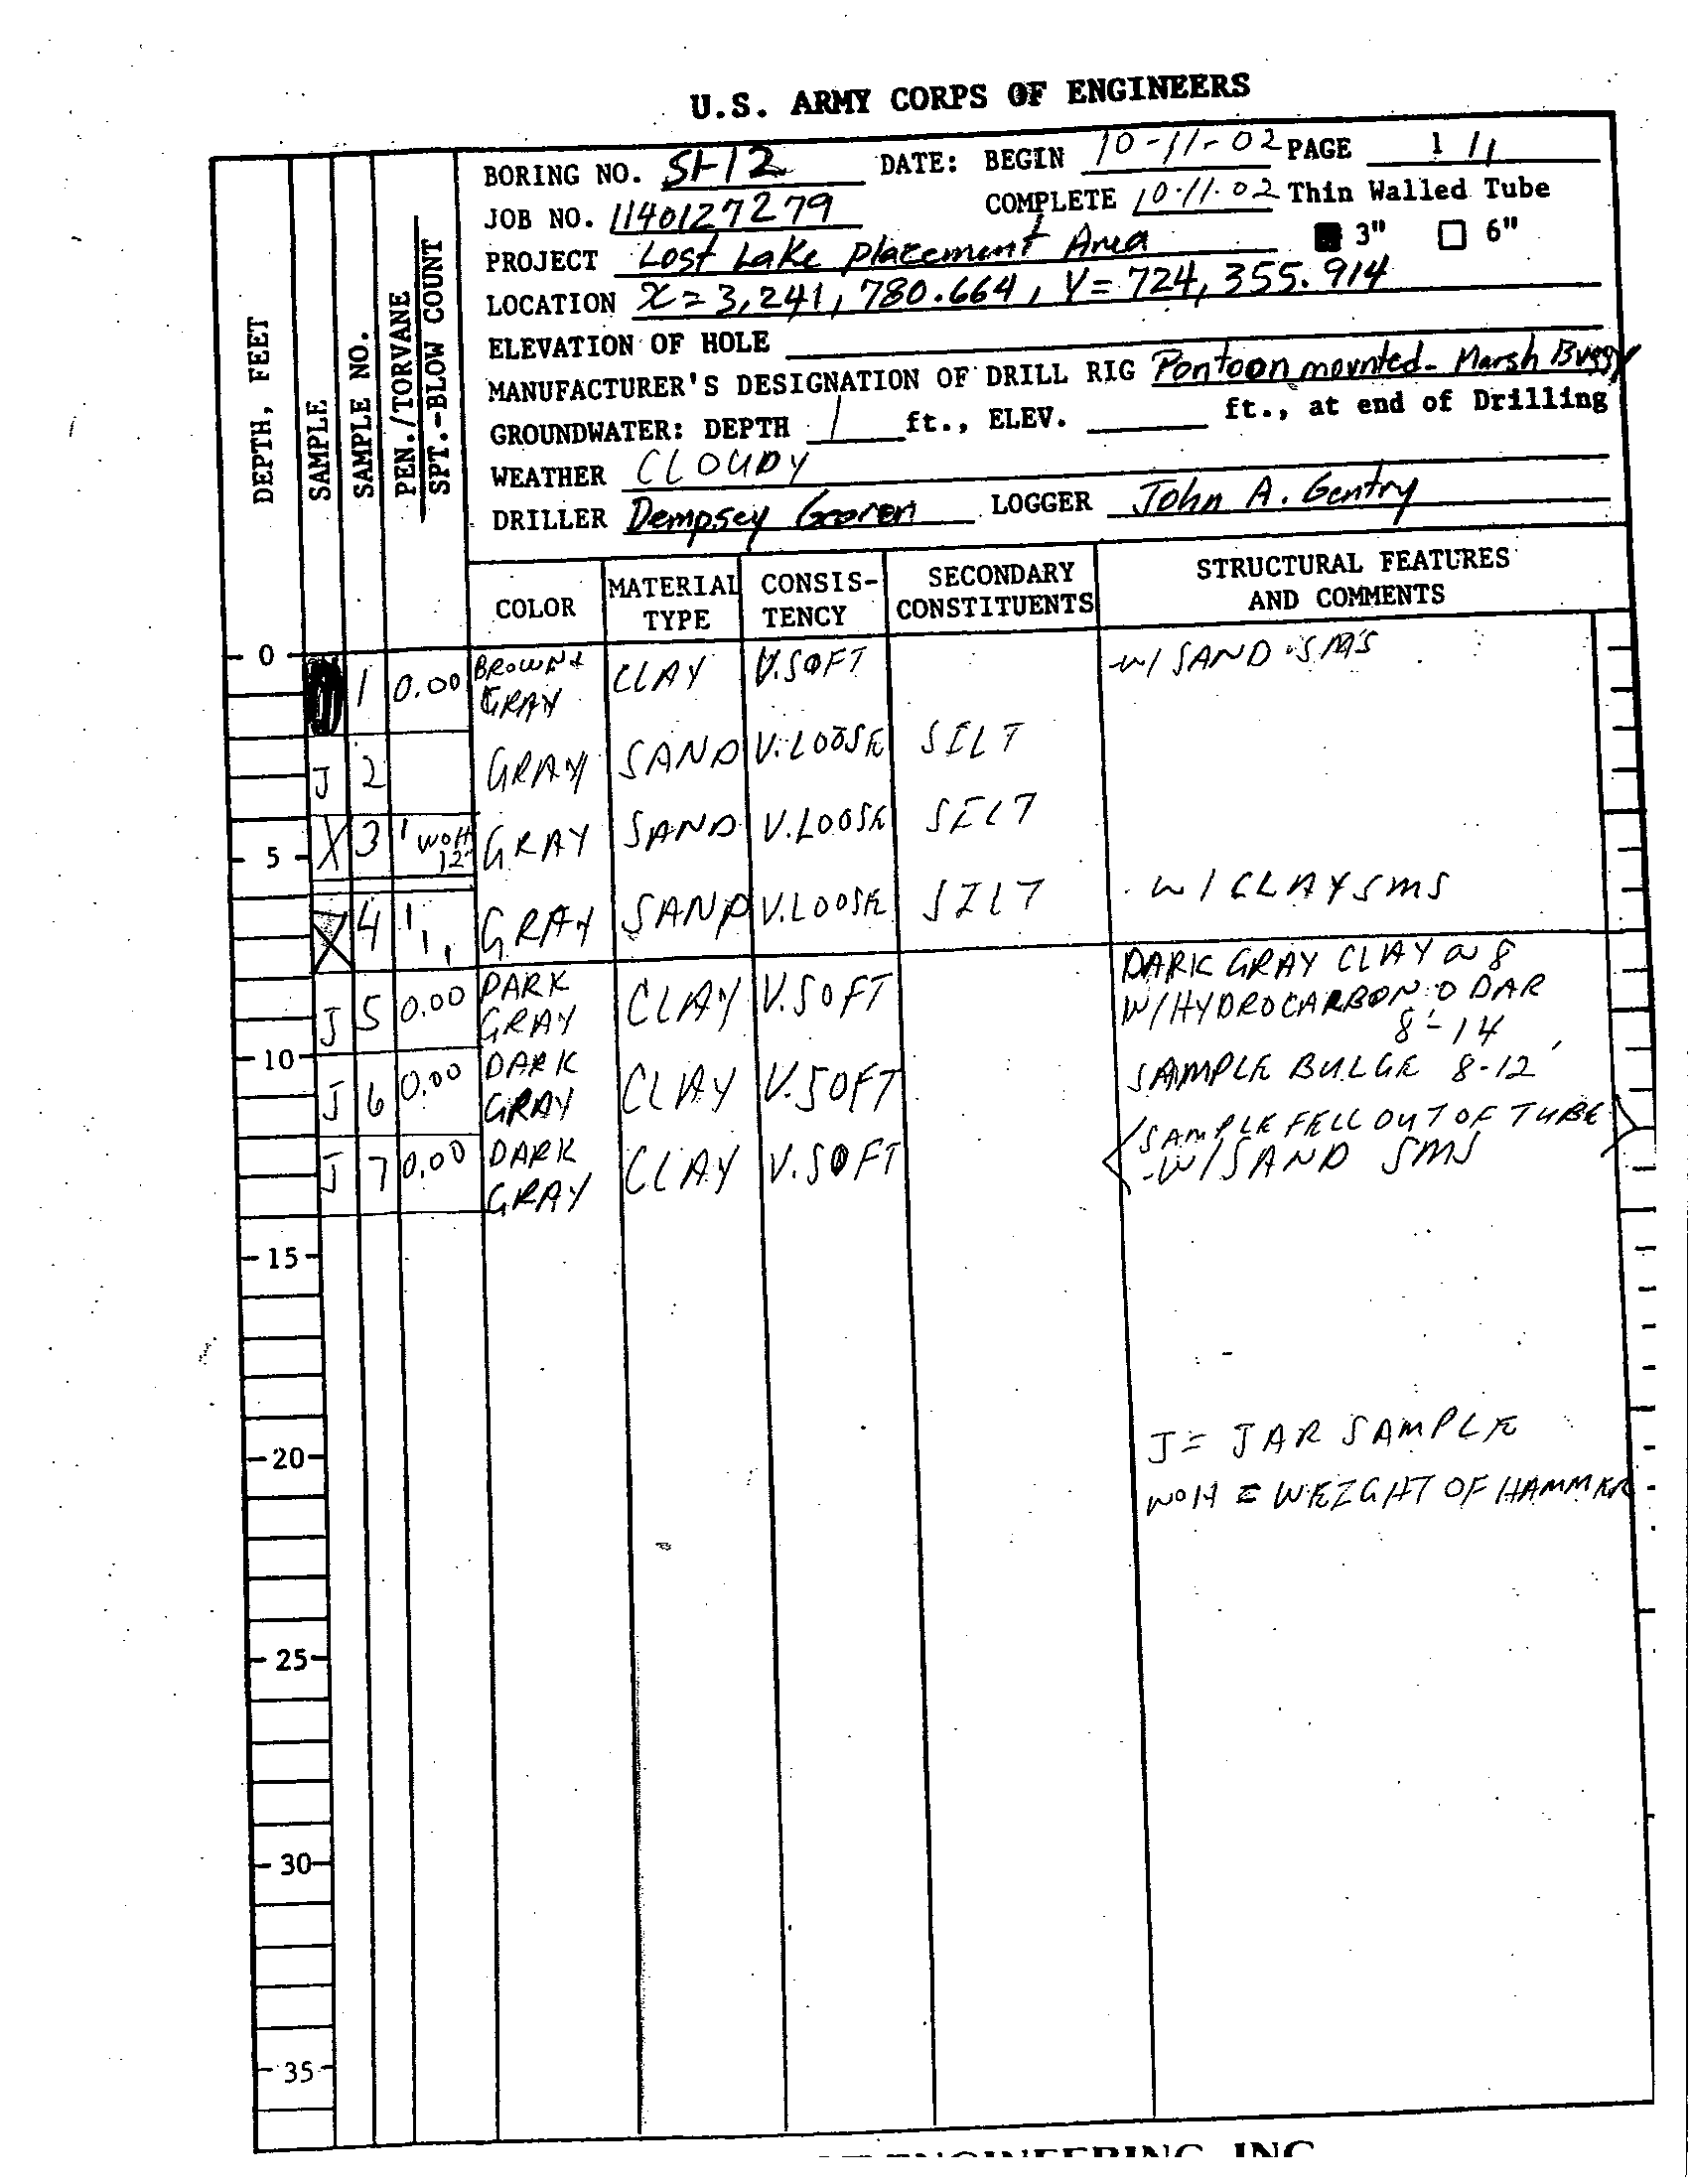 U.S. ARMY CORPS OF ENGINEERS
BORING NO. SI-12 DATE: BEGIN 10-11-02 PAGE 1 / 1
JOB NO. 1140127279 COMPLETE 10-11-02 Thin Walled Tube
PROJECT Lost Lake Placement Area 3" 6"
LOCATION X=3,241,780.664, Y=724,355.914
ELEVATION OF HOLE
MANUFACTURER'S DESIGNATION OF DRILL RIG Pontoon mounted- Marsh Buggy
GROUNDWATER: DEPTH 1 ft., ELEV. ft., at end of Drilling
WEATHER CLOUDY
DRILLER Dempsey LOGGER John A. Gentry
DEPTH, FEET
SAMPLE
SAMPLE NO.
PEN./TORVANE
SPT.-BLOW COUNT
COLOR MATERIAL TYPE CONSIS-TENCY SECONDARY CONSTITUENTS STRUCTURAL FEATURES AND COMMENTS
0
1 0.00 BROWN & GRAY CLAY V.SOFT -W/ SAND SMS
J 2 GRAY SAND V.LOOSE SILT
5
X 3 1 WOH 12" GRAY SAND V.LOOSE SILT
X 4 1 1 1 GRAY SAND V.LOOSE SILT -W/CLAY SMS
J 5 0.00 DARK GRAY CLAY V.SOFT DARK GRAY CLAY @ 8
W/HYDROCARBON ODAR
8'-14
10
J 6 0.00 DARK GRAY CLAY V.SOFT SAMPLE BULGE 8-12'
J 7 0.00 DARK GRAY CLAY V.SOFT SAMPLE FELL OUT OF TUBE
-W/SAND SMS
15
20
J = JAR SAMPLE
WOH = WEIGHT OF HAMMER
25
30
35
ENGINEERING INC